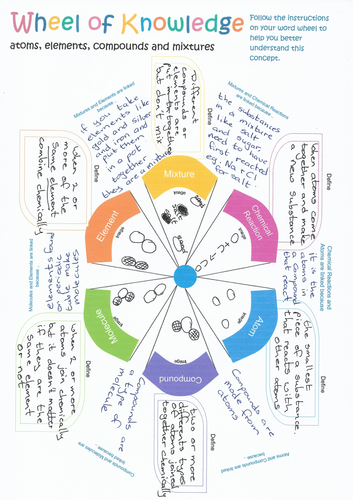 Wheel of Knowledge
atoms, elements, compounds and mixtures
Follow the instructions
on your word wheel to
help you better
understand this
concept.
Mixture
Define
Different
compounds or
elements are
put in together
but don't mix
Mixtures and Chemical Reactions
are linked because
the substances
in a mixture
like salt
and sugar,
need to reacted
eg. Na + Cl
for salt
Chemical
Reaction
Define
When atoms come
together and make
a new substance
Chemical Reactions and
Atoms are linked because
it is the
atoms in
a compound
that react
Atom
Define
the smallest
piece of a substance
that reacts with
other atoms
Atoms and Compounds are linked
because
Compounds are
made from
atoms
Compound
Define
two or more
different types
of atoms joined
together chemically
Compounds and Molecules are
linked because
Compounds are
a type of
molecule
Molecule
Define
When 2 or more
atoms join chemically
but it doesnt matter
if they are the
same element
or not
Molecules and Elements are linked
because
Element
Define
When 2 or
more of the
same element
combine chemically
Mixtures and Elements are linked
if you take
elements like
gold and silver
and iron and
put them
in a pot
together
they are a mixture
Image
Image
Image
Image
Image
Image